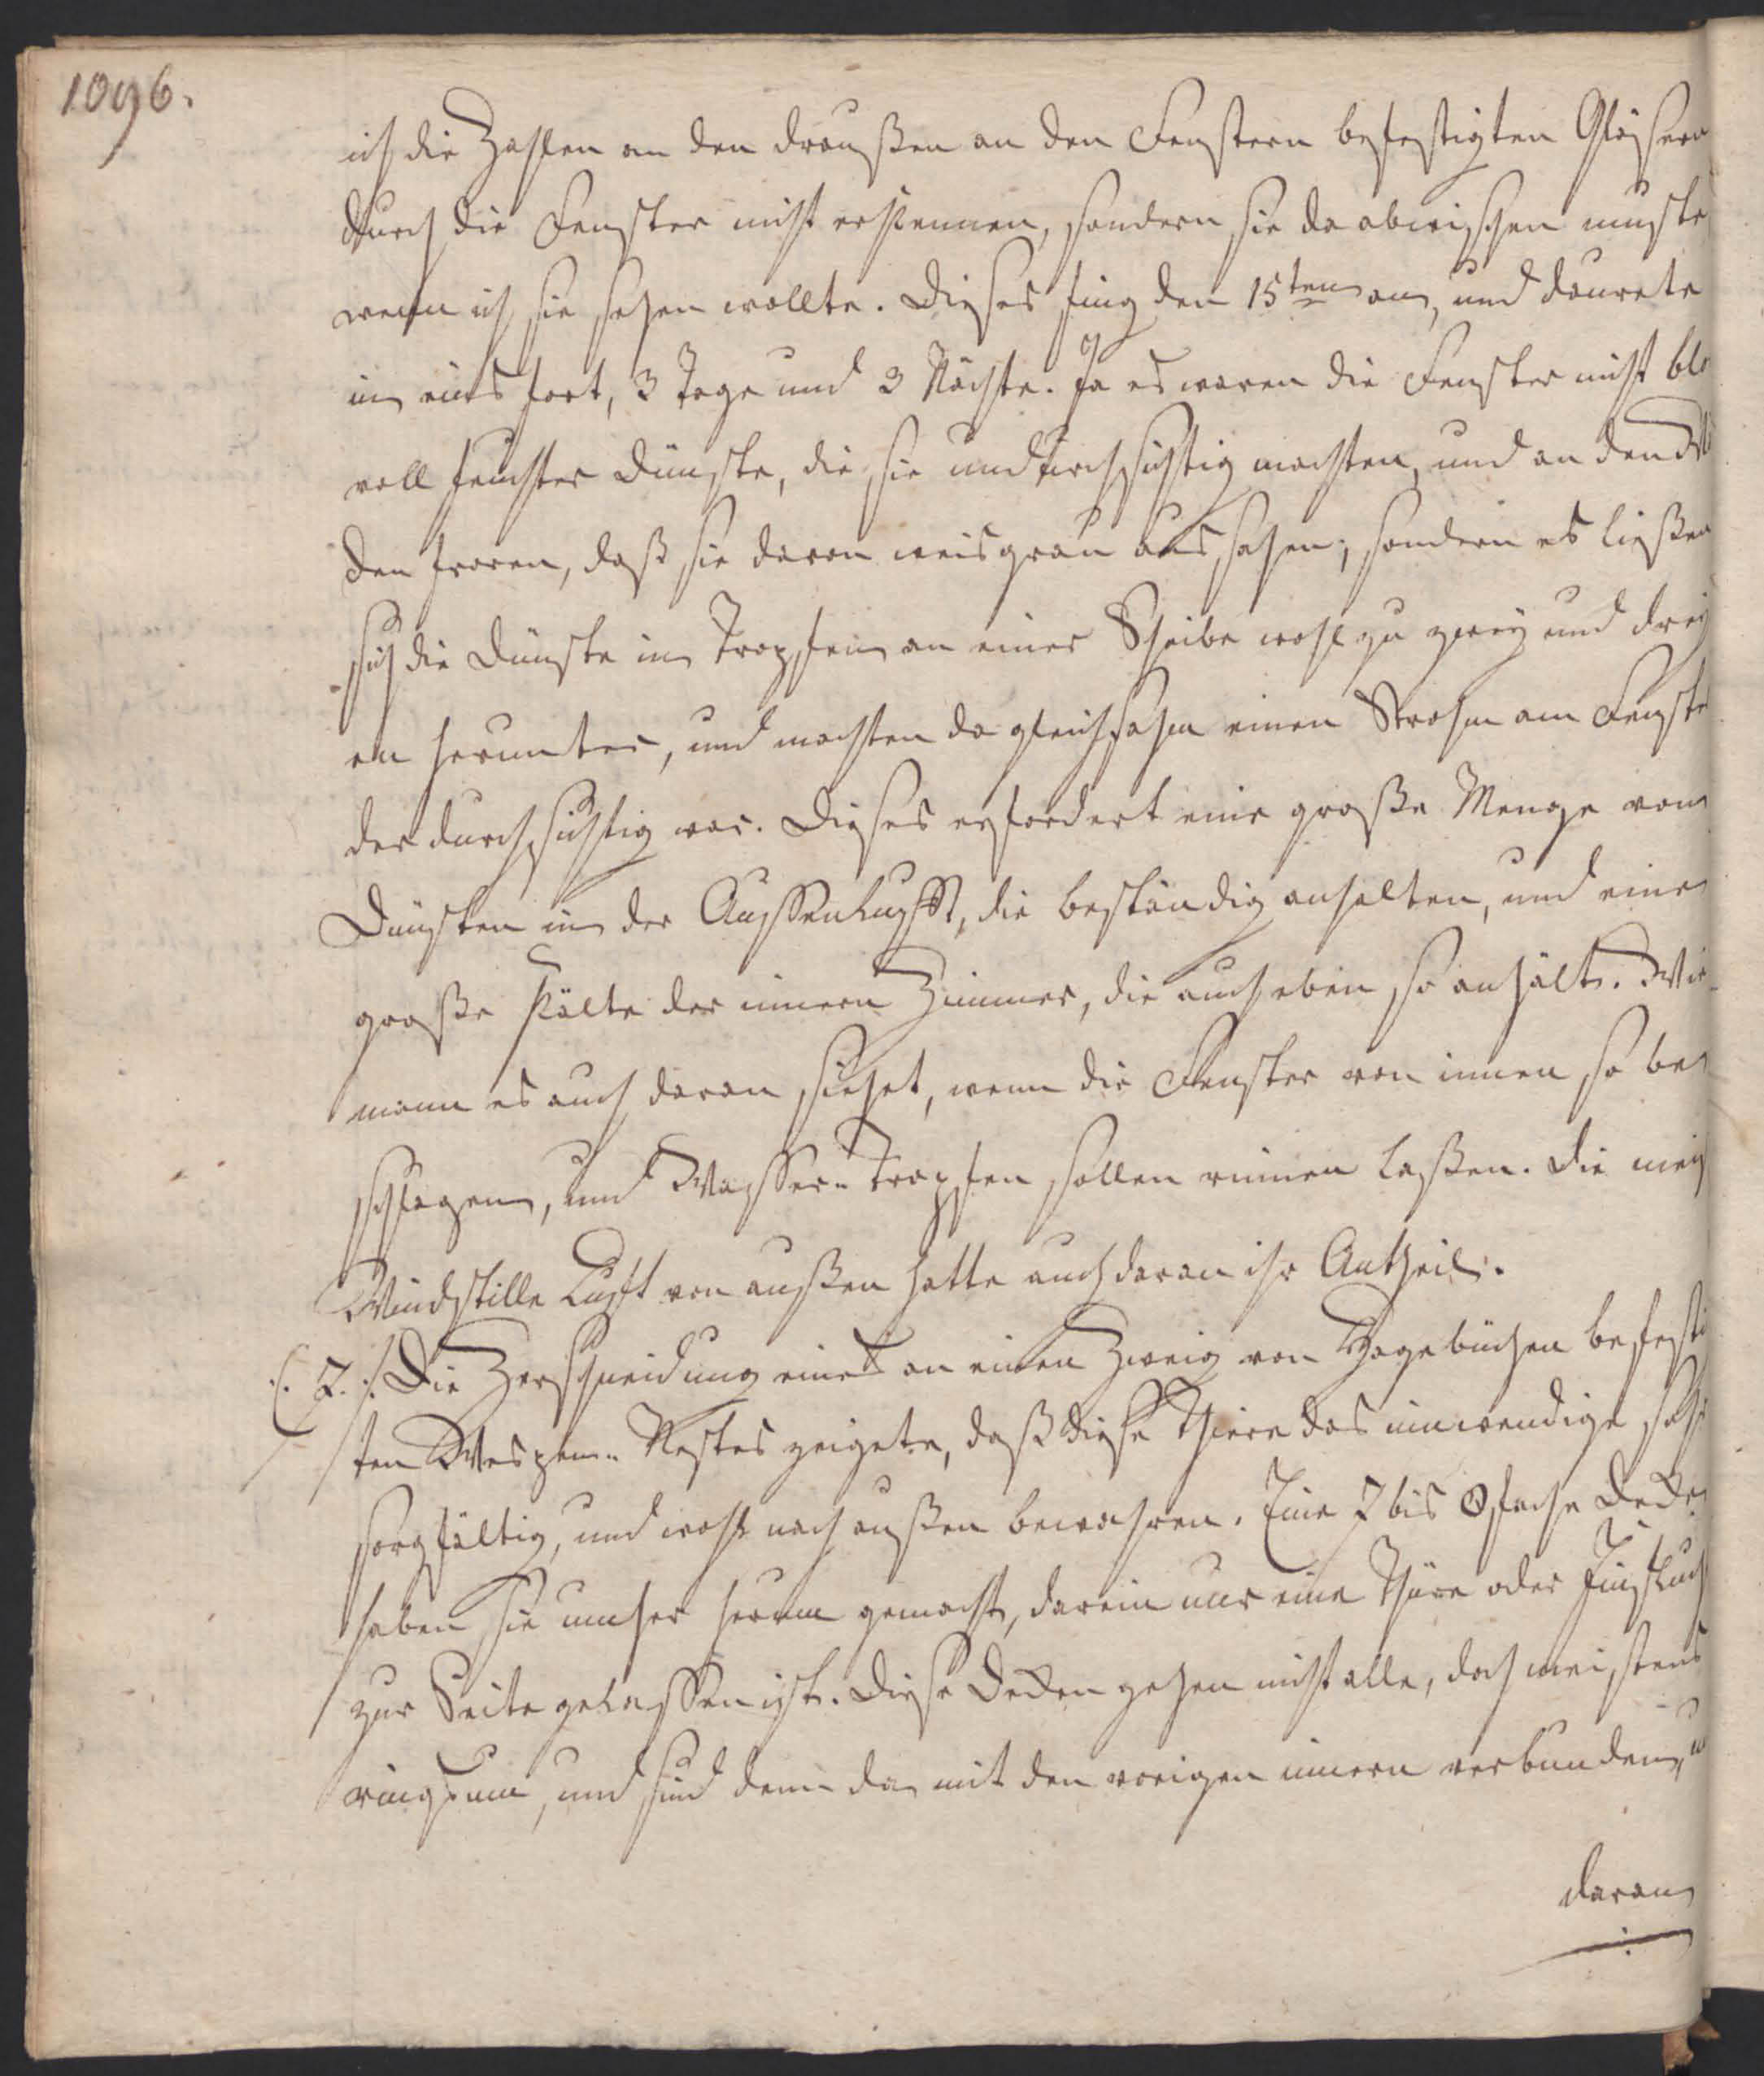 1096.
ich die Zahlen an den draußen an den Fenstern befestigten Gläsern
durch die Fenster nicht erkennen, sondern sie da abwischen muste
wenn ich sie sehen wollte. Dieses fing den 15ten an, und daurete
in eins fort, 3 Tage und 3 Nächte. Ja es waren die Fenster nicht blo
voll feuchter Dünste, die sie undurchsichtig machten, und an den
den froren, daß sie davon weisgrau aussahen; sondern es ließen
sich die Dünste in Tropfen an einer Scheibe wohl zu zwey und drey
en herunter, und machten da gleichsahm einen Strohm am Fenste
der durchsichtig war. Dieses erfordert eine große Menge von
Dünsten in der Aussenluft, die beständig anhalten, und eine
große Kälte der innern Zimmer, die auch eben so anhält. Wie
mann es auch daran siehet, wenn die Fenster von innen so be
schlagen, und Wasser-Tropfen sollen rinnen laßen. Die mei
Windstille Luft von außen hatte auch daran ihr Antheil.
(. 7. :/ Die Zerschneidung eines an einen Zweig von Hagebüchen befesti
ten Wespen-Nestes zeigete, daß diese Thiere das inwendige sehr
sorgfältig, und wohl nach außen bewahren. Eine 7 bis 8fache Decke
haben sie umher herum gemacht, darein nur eine Thüre oder Flugloch
zur Seite gelassen ist. Diese Decken gehen nicht alle, doch meistens
ringsum, und sind denn da mit den vorigen innern verbunden, u
daran